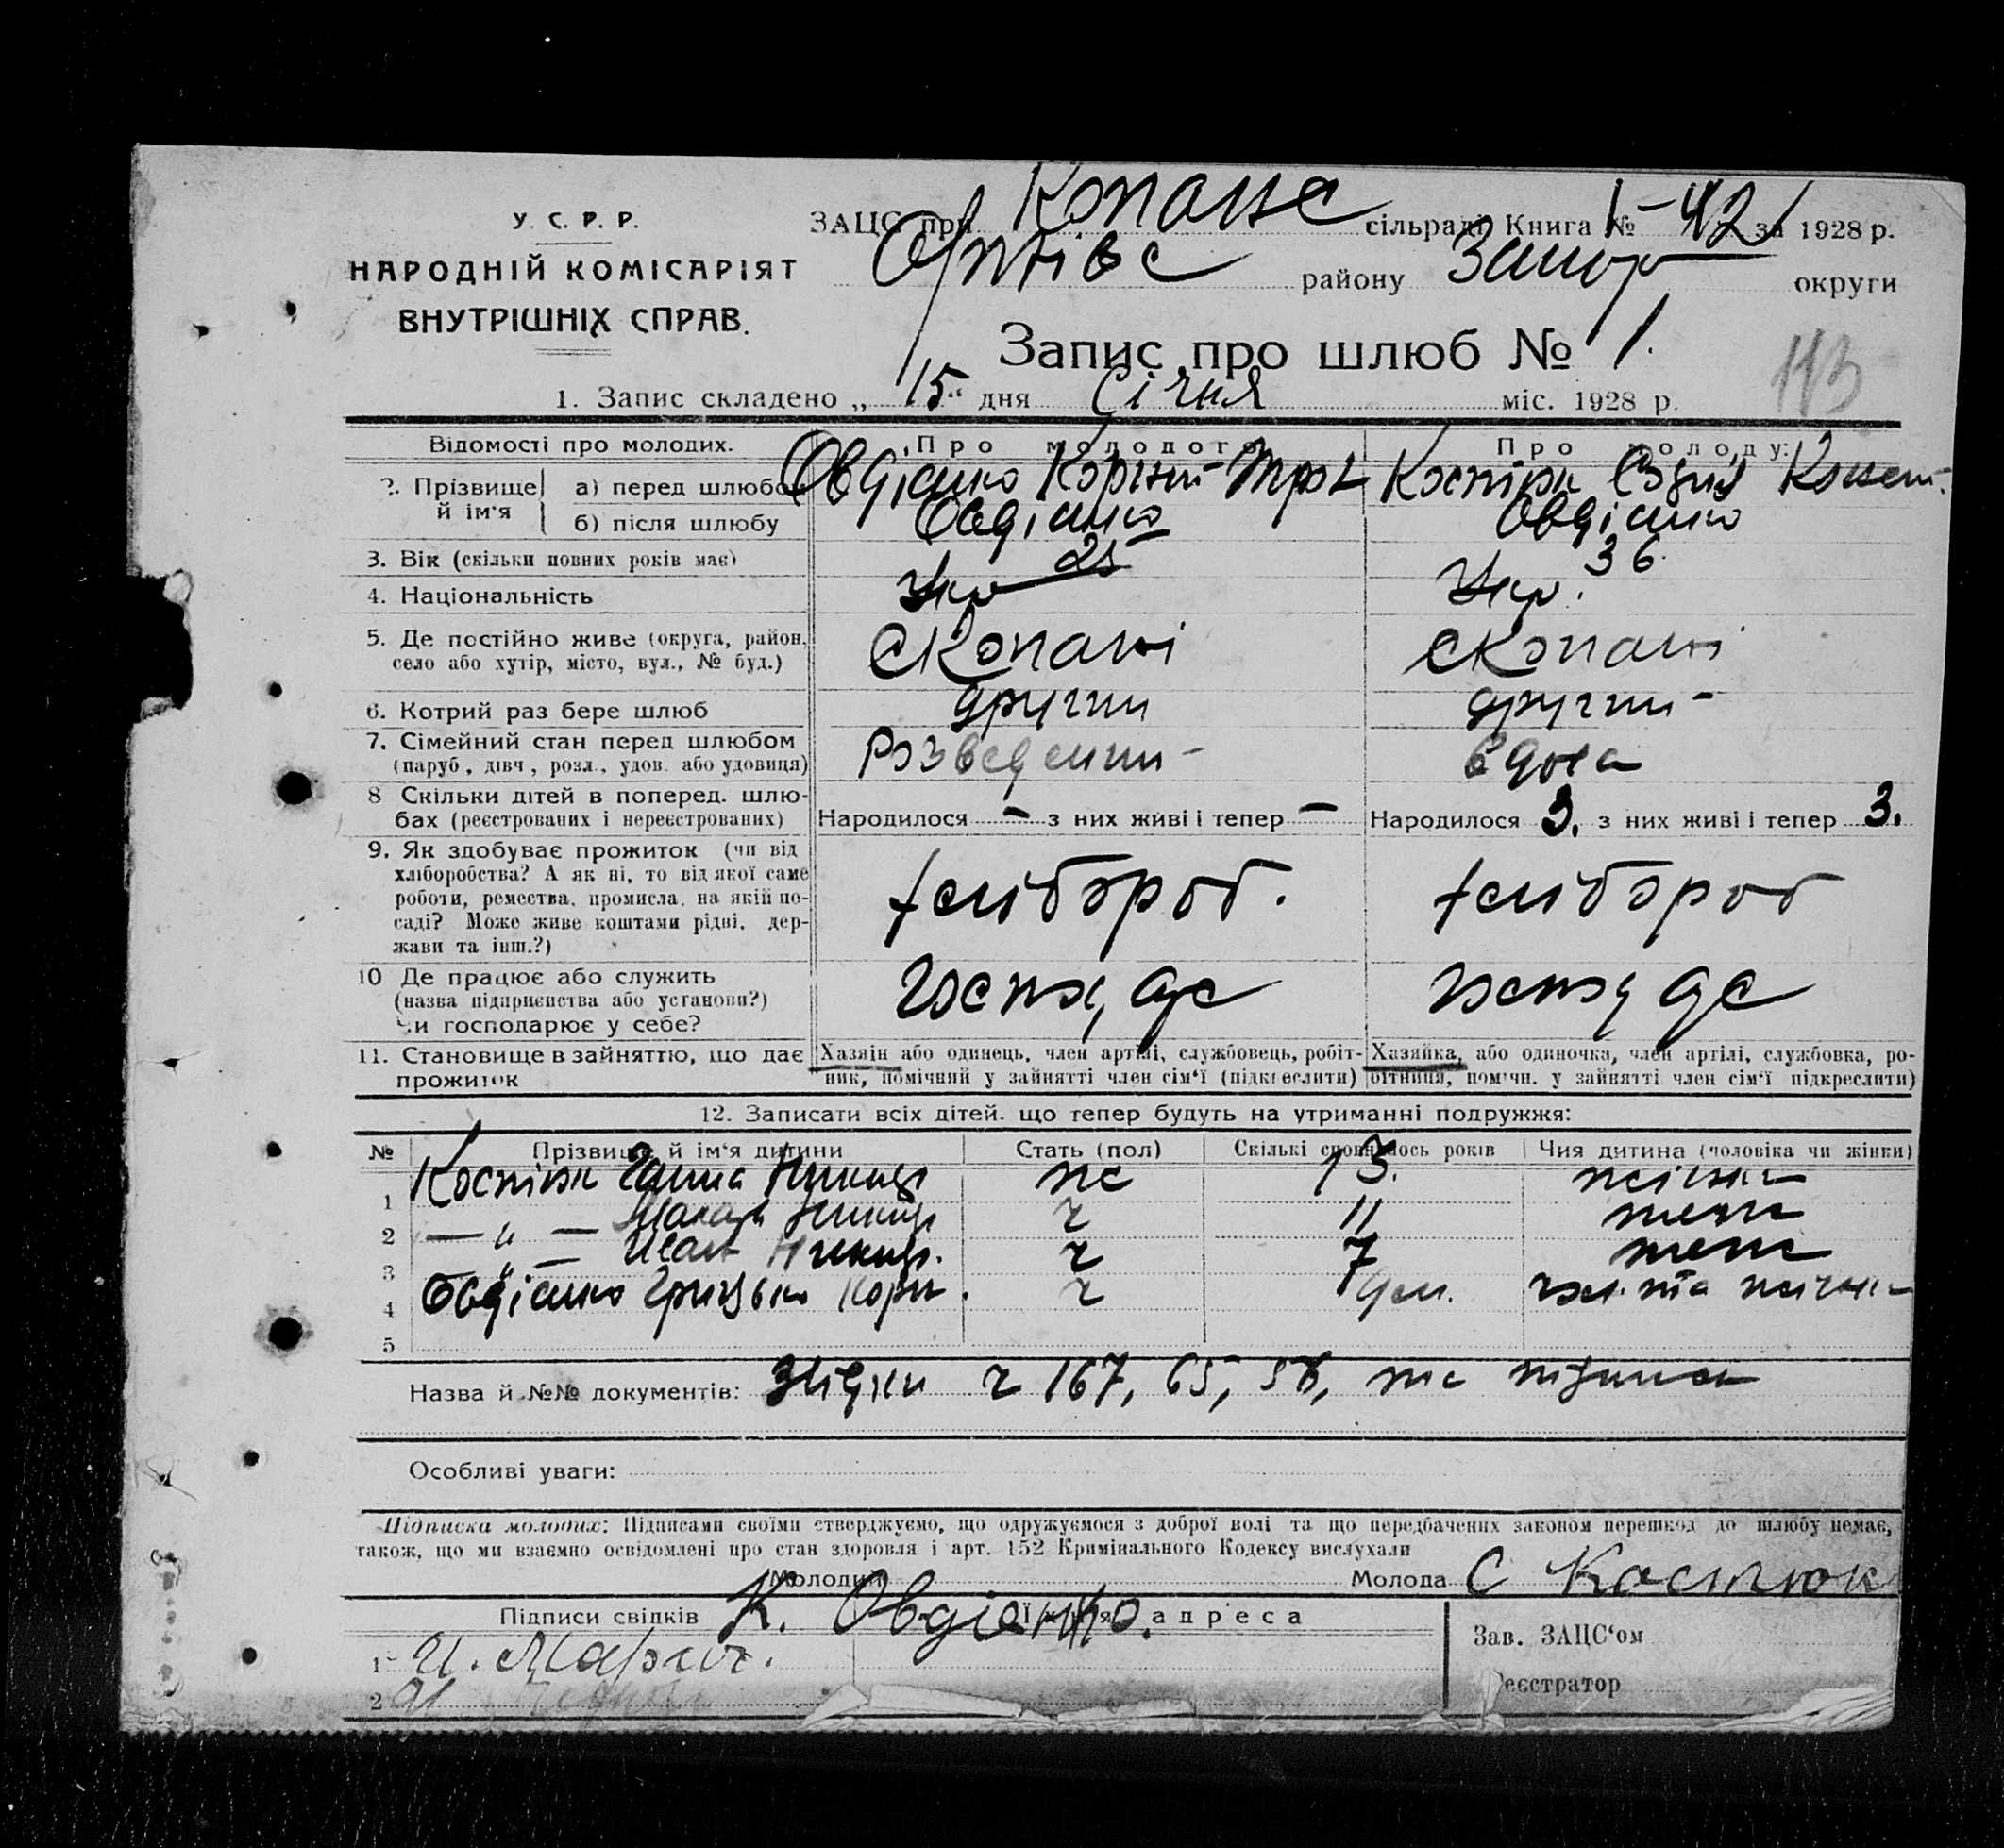 У. С. Р. Р.
НАРОДНІЙ КОМІСАРІЯТ
ВНУТРІШНІХ СПРАВ.
ЗАЦС при Копансь сільраді Книга № 1-42 за 1928 р.
району Запор округи
Запис про шлюб № 1.
113
1. Запис складено „15“ дня Січня міс. 1928 р.
Відомості про молодих. Про молодого Про молоду:
2. Прізвище й ім'я
а) перед шлюбом Овдієнко Корній Костюк Софія
б) після шлюбу Овдієнко Овдієнко
3. Вік (скільки повних років має) 25 36
4. Національність Укр Укр.
5. Де постійно живе (округа, район, село або хутір, місто, вул., № буд.) с Копані с Копані
6. Котрий раз бере шлюб другий другий
7. Сімейний стан перед шлюбом (паруб, дівч, розл., удов. або удовиця) Розведений вдова
8 Скільки дітей в поперед. шлюбах (реєстрованих і нереєстрованих) Народилося – з них живі і тепер – Народилося 3. з них живі і тепер 3.
9. Як здобуває прожиток (чи від хліборобства? А як ні, то від якої саме роботи, ремества, промисла, на якій посаді? Може живе коштами рідні, держави та інш.?) хлібороб. хлібороб
10 Де працює або служить (назва підприємства або установи?) Чи господарює у себе?
11. Становище в зайняттю, що дає прожиток
Хазяін або одинець, член артілі, службовець, робітник, помічний у зайнятті член сім'ї (підкреслити)
Хазяйка, або одиночка, член артілі, службовка, робітниця, помічн. у зайнятті член сім'ї підкреслити)
12. Записати всіх дітей, що тепер будуть на утриманні подружжя:
№ Прізвище й ім'я дитини Стать (пол) Скількі сповнилось років Чия дитина (чоловіка чи жінки)
1 Костюк Ганна ж 13. жінки
2 — „ — ч 11 теж
3 — „ — Іван ч 7 теж
4 Овдієнко Грицько Корн. ч чол. та жінки
5
Назва й №№ документів: Звідки ч 167, 65, 58, та
Особливі уваги:
Підписка молодих: Підписами своїми стверджуємо, що одружуємося з доброї волі та що передбачених законом перешкод до шлюбу немає,
також, що ми взаємно освідомлені про стан здоровля і арт. 152 Кримінального Кодексу вислухали
Молодий К. Овдієнко. Молода С Костюк
Підписи свідків Їхня адреса
1
2
Зав. ЗАЦС'ом
Реєстратор